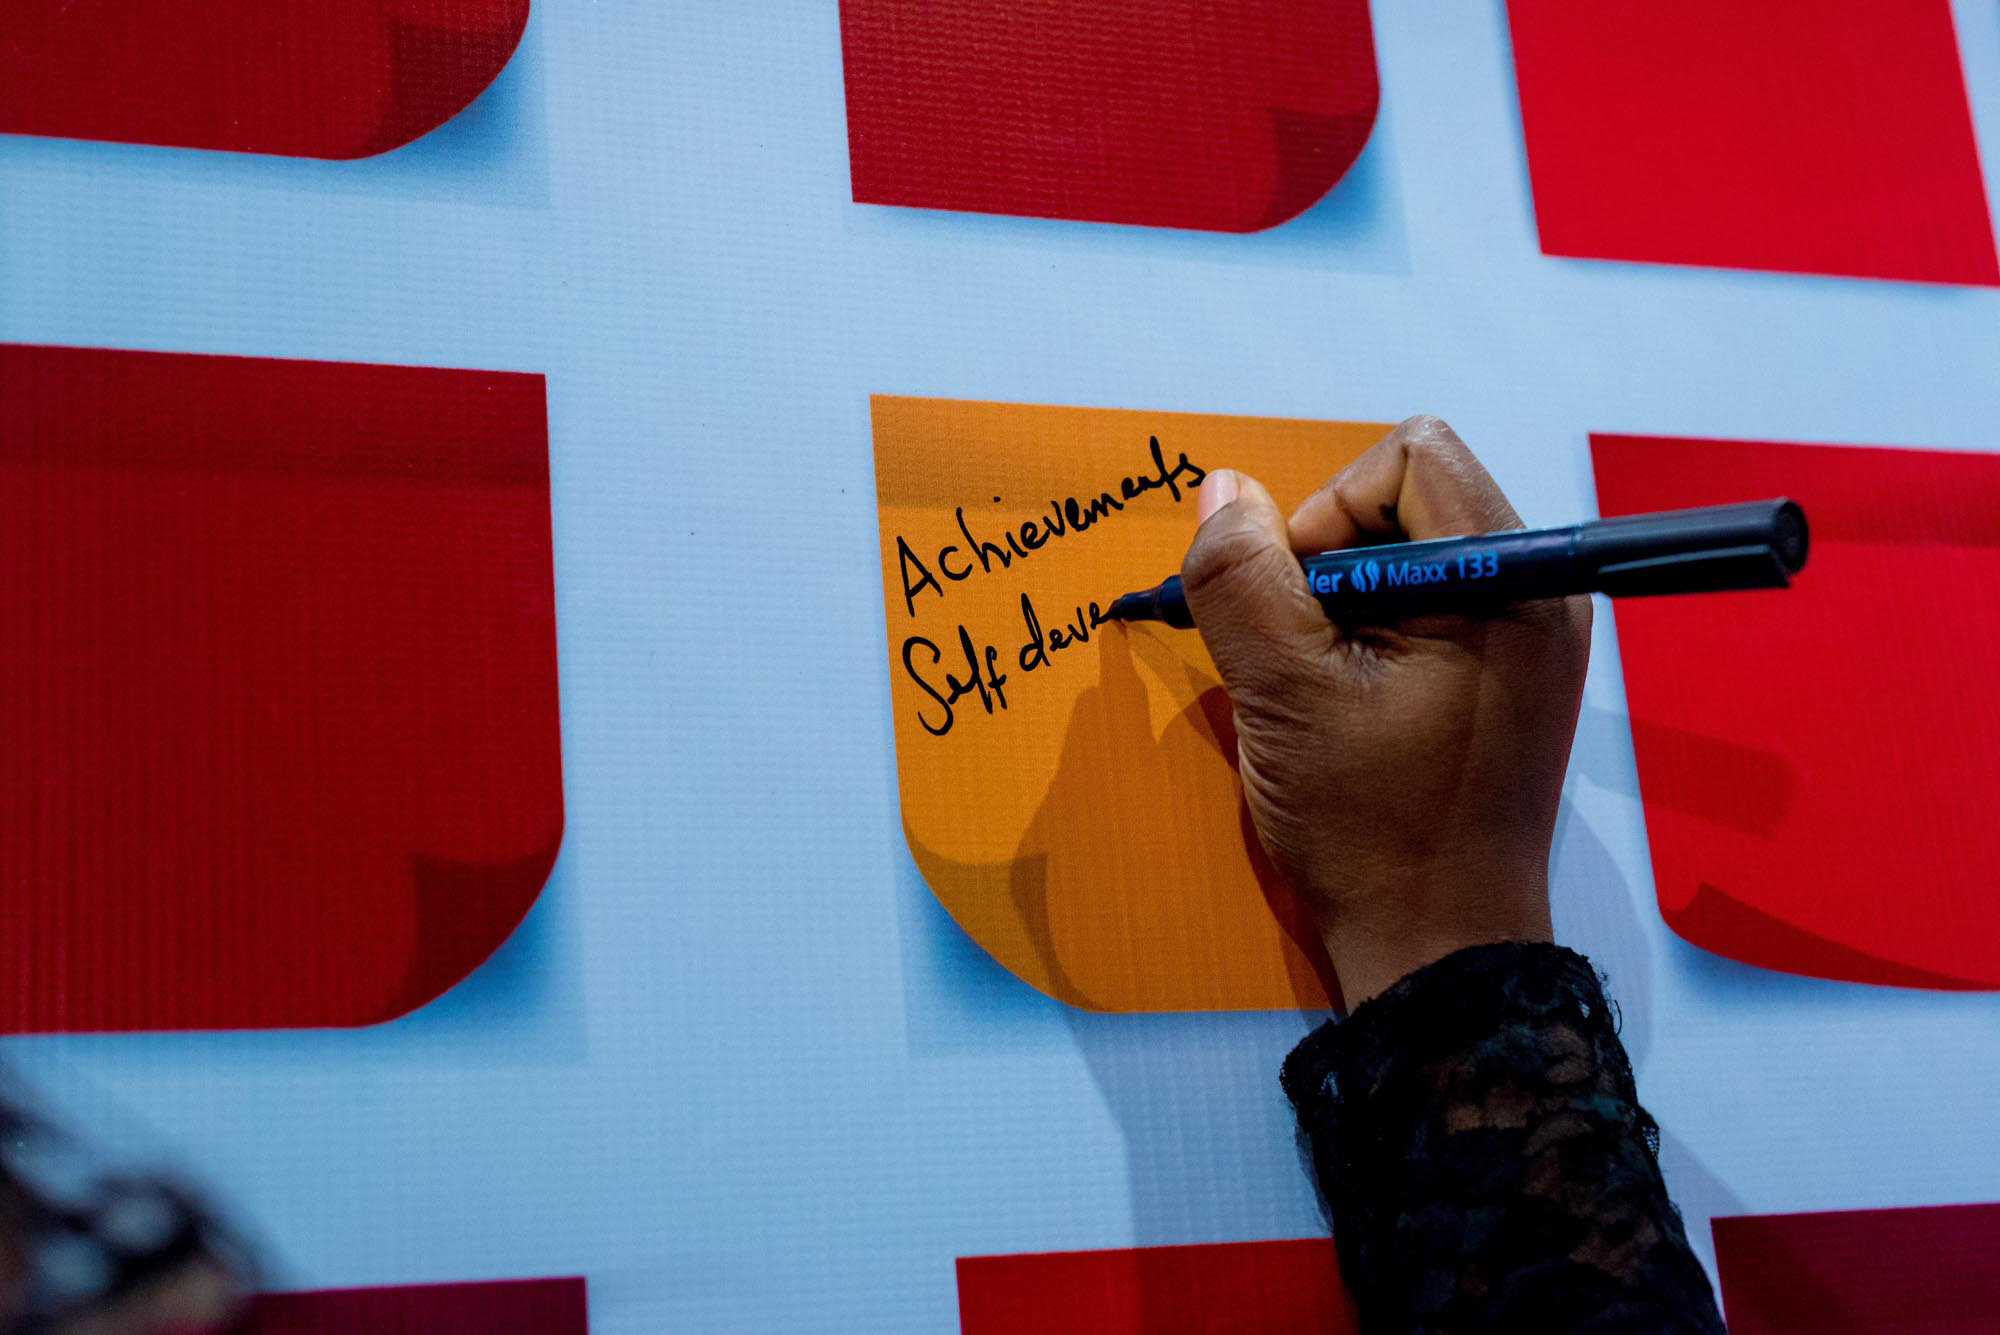 Achievements
Self deve
der Maxx 133